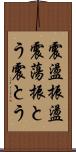 震盪振盪
震蕩振と
う震とう